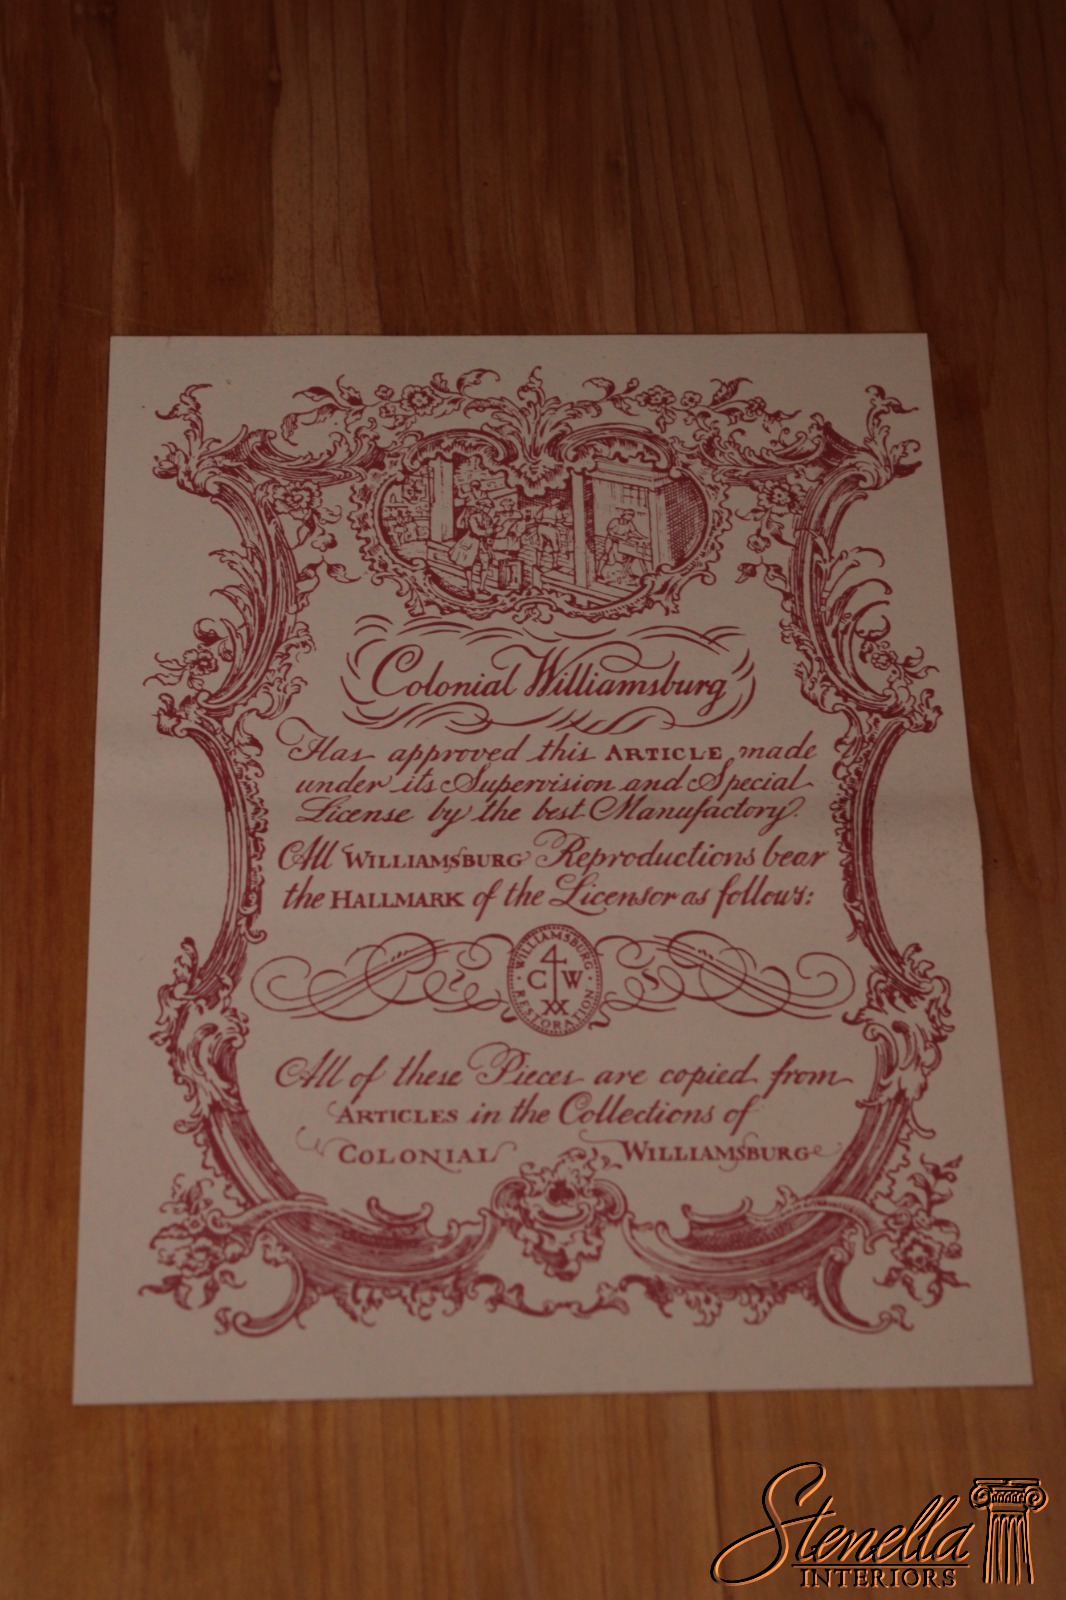 Colonial Williamsburg
Has approved this ARTICLE made
under its Supervision and Special
License by the best Manufactory.
All WILLIAMSBURG Reproductions bear
the HALLMARK of the Licensor as follows:
WILLIAMSBURG
C W
RESTORATION
All of these Pieces are copied from
ARTICLES in the Collections of
COLONIAL WILLIAMSBURG
Stenella
INTERIORS